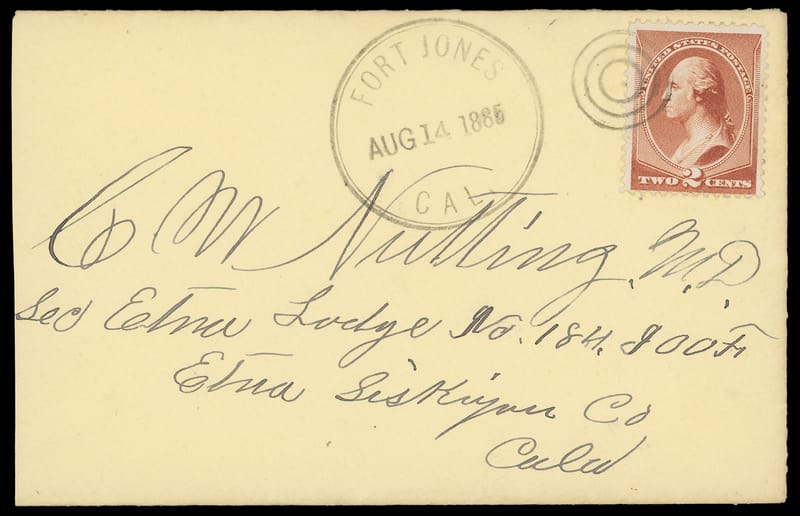 FORT JONES
AUG 14 1885
CAL.
UNITED STATES POSTAGE
TWO 2 CENTS
C W Nutting, M.D
Sec Etna Lodge No. 184, I O O F
Etna Siskiyou Co
Cala